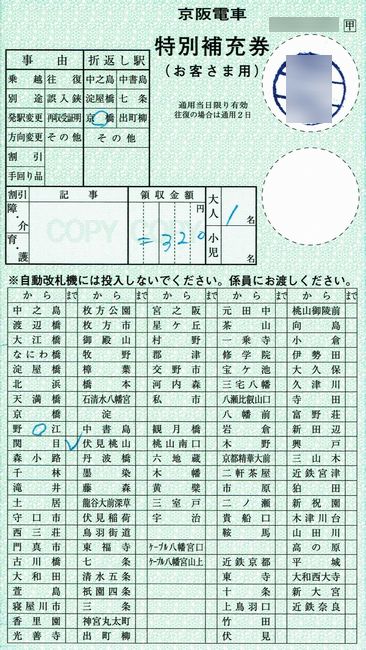 京阪電車
甲
特別補充券
(お客さま用)
通用当日限り有効
往復の場合は通用2日
事由 折返し駅
乗越 往復 中之島 中書島
別途 誤入鋏 淀屋橋 七条
発駅変更 再収受証明 京橋 出町柳
方向変更 その他 その他
割引
手回り品
割引 記事 領収金額 大人 1名
障・介 円
育・護 =320 小児 名
COPY
※自動改札機には投入しないでください。係員にお渡しください。
から まで から まで から まで から まで から まで
中之島 枚方公園 宮之阪 元田中 桃山御陵前
渡辺橋 枚方市 星ケ丘 茶山 向島
大江橋 御殿山 村野 一乗寺 小倉
なにわ橋 牧野 郡津 修学院 伊勢田
淀屋橋 樟葉 交野市 宝ケ池 大久保
北浜 橋本 河内森 三宅八幡 久津川
天満橋 石清水八幡宮 私市 八瀬比叡山口 寺田
京橋 淀 八幡前 富野荘
野江 中書島 観月橋 岩倉 新田辺
関目 伏見桃山 桃山南口 木野 興戸
森小路 丹波橋 六地蔵 京都精華大前 三山木
千林 墨染 木幡 二軒茶屋 近鉄宮津
滝井 藤森 黄檗 市原 狛田
土居 龍谷大前深草 三室戸 二ノ瀬 新祝園
守口市 伏見稲荷 宇治 貴船口 木津川台
西三荘 鳥羽街道 鞍馬 山田川
門真市 東福寺 ケーブル八幡宮口 高の原
古川橋 七条 ケーブル八幡宮山上 近鉄京都 平城
大和田 清水五条 東寺 大和西大寺
萱島 祇園四条 十条 新大宮
寝屋川市 三条 上鳥羽口 近鉄奈良
香里園 神宮丸太町 竹田
光善寺 出町柳 伏見